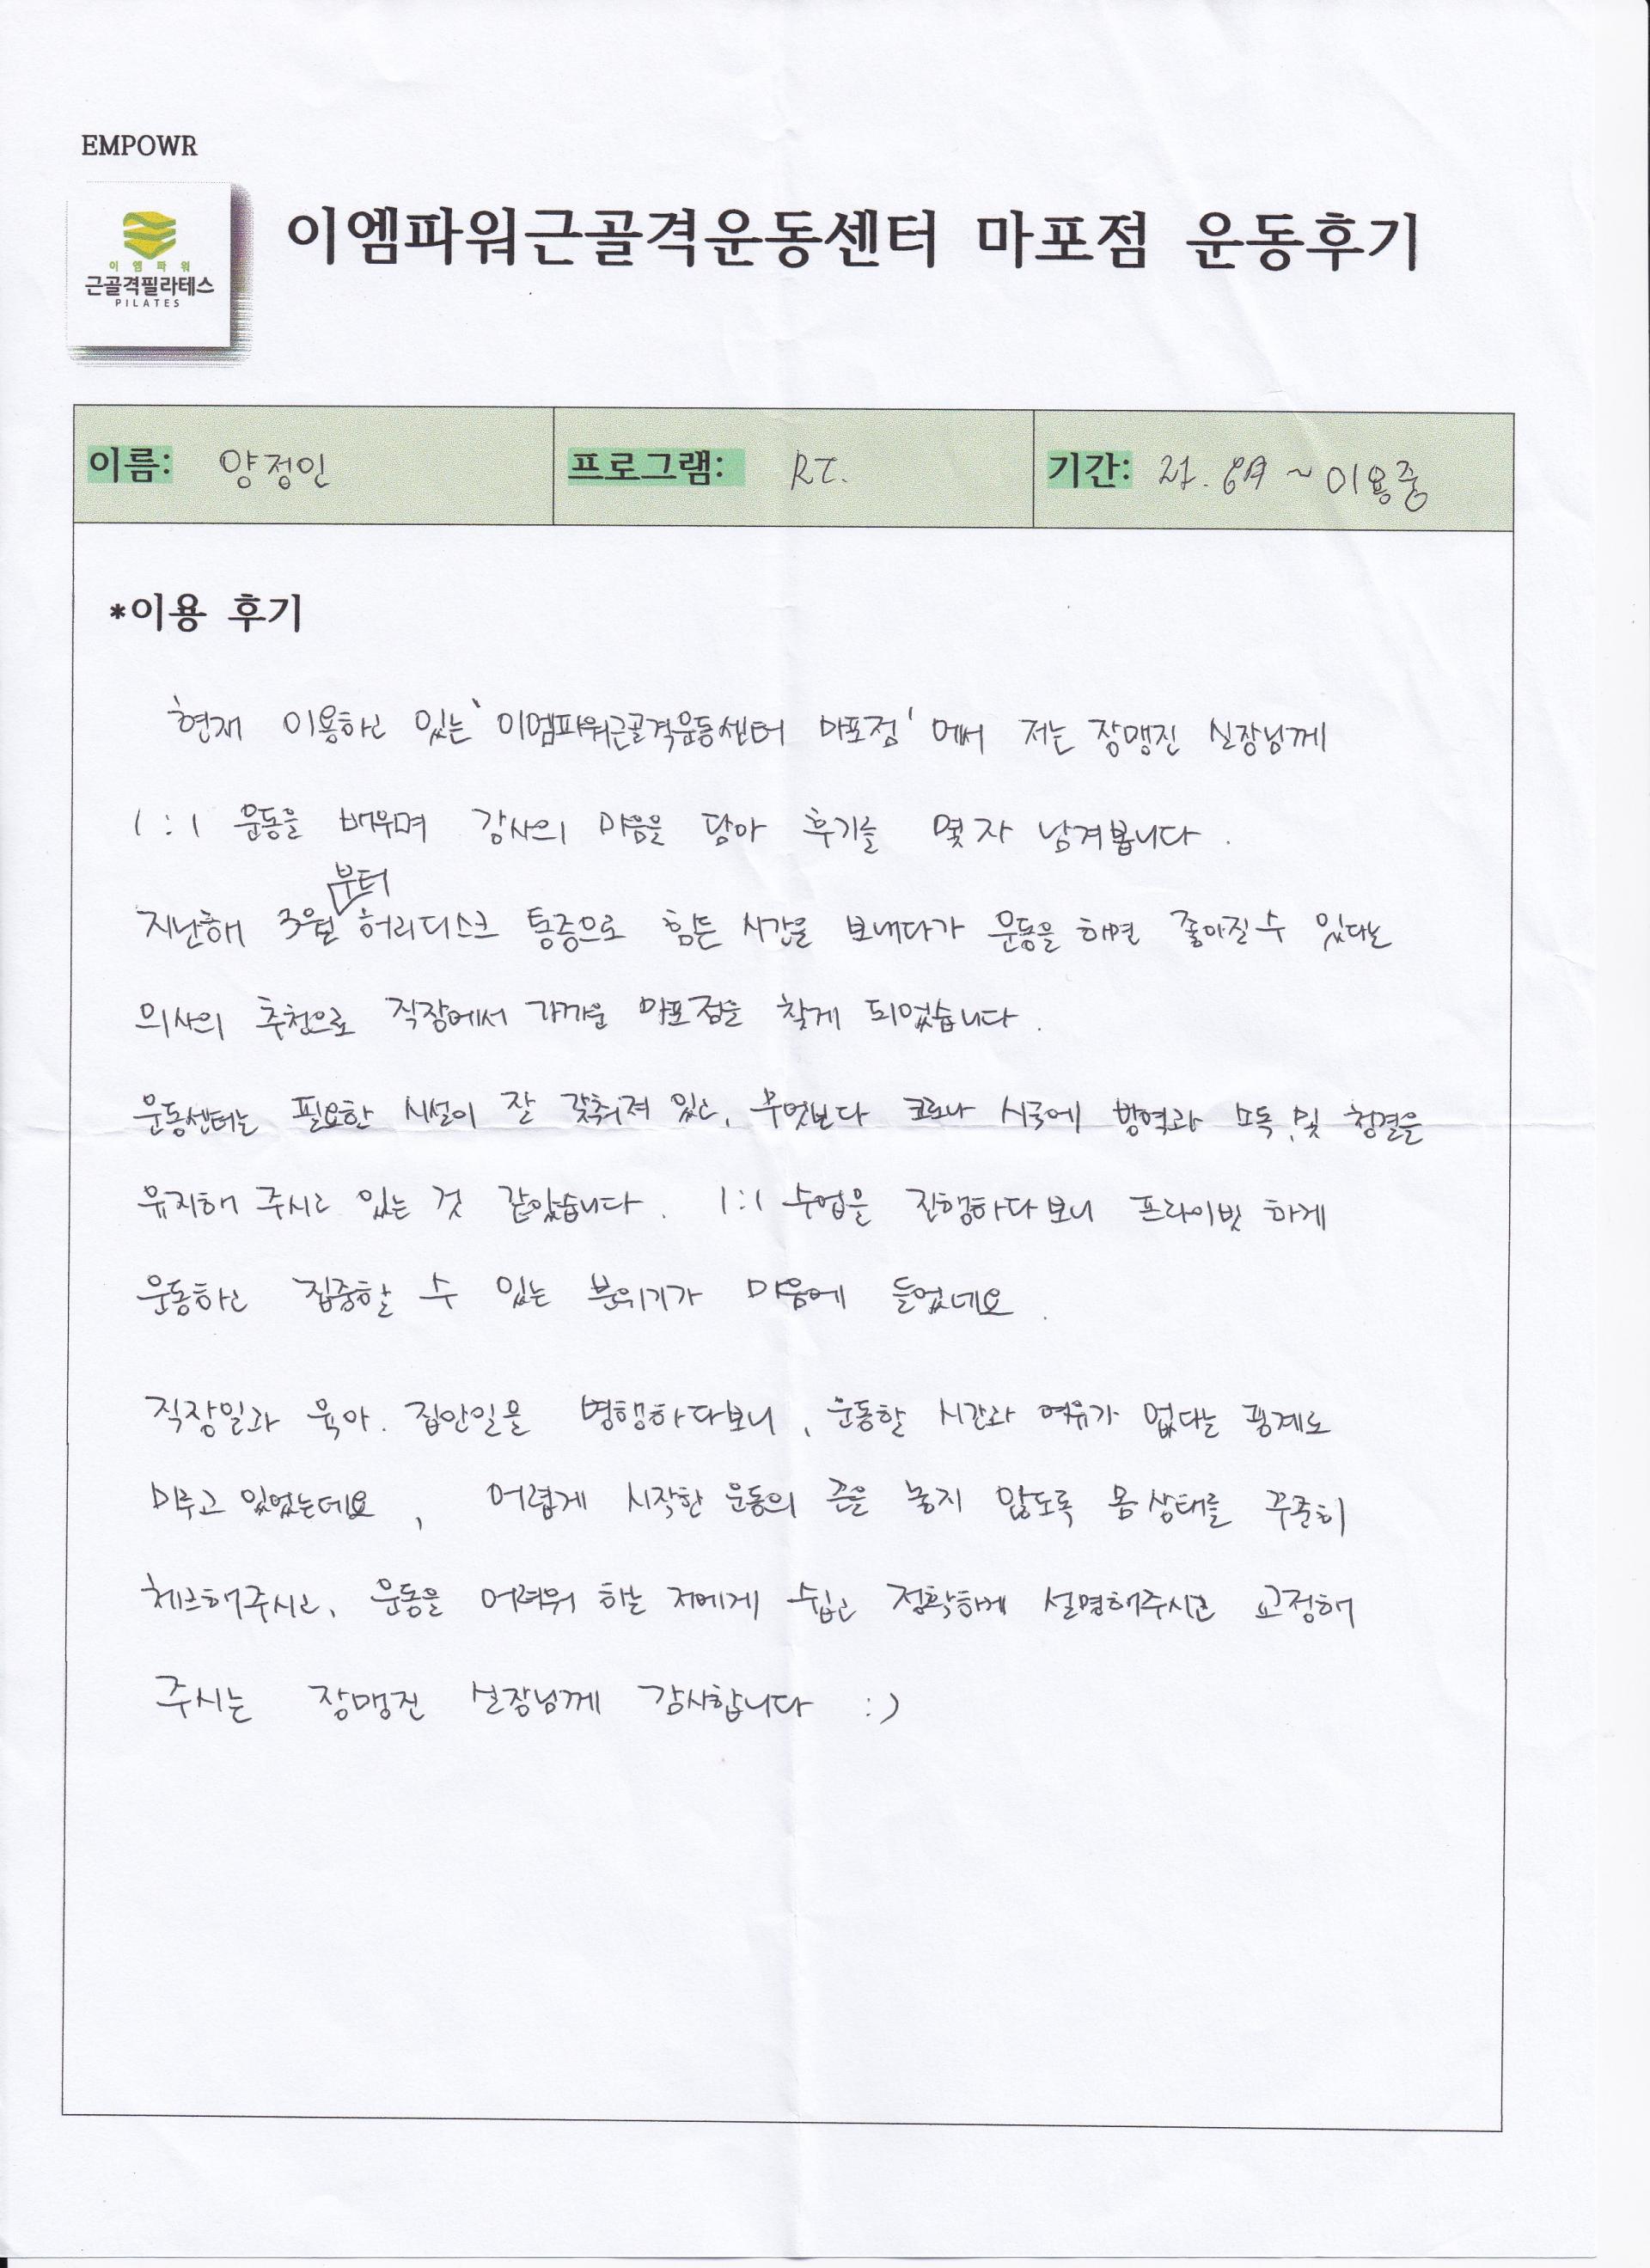 EMPOWR
이엠파워
근골격필라테스
PILATES
이엠파워근골격운동센터 마포점 운동후기
이름: 양정인 프로그램: RT. 기간: 21. 6월 ~ 이용중
*이용 후기
현재 이용하고 있는 '이엠파워근골격운동센터 마포점' 에서 저는 장맹진 실장님께
1:1 운동을 배우며 감사의 마음을 담아 후기를 몇 자 남겨봅니다.
지난해 3월부터 허리디스크 통증으로 힘든 시간을 보내다가 운동을 하면 좋아질 수 있다는
의사의 추천으로 직장에서 가까운 마포점을 찾게 되었습니다.
운동센터는 필요한 시설이 잘 갖춰져 있고, 무엇보다 코로나 시국에 방역과 소독, 및 청결을
유지해 주시고 있는 것 같았습니다. 1:1 수업을 진행하다보니 프라이빗 하게
운동하고 집중할 수 있는 분위기가 마음에 들었네요.
직장일과 육아. 집안일을 병행하다보니, 운동할 시간과 여유가 없다는 핑계로
미루고 있었는데요, 어렵게 시작한 운동의 끈을 놓지 않도록 몸 상태를 꾸준히
체크해주시고, 운동을 어려워 하는 저에게 쉽고 정확하게 설명해주시고 교정해
주시는 장맹진 실장님께 감사합니다 :)